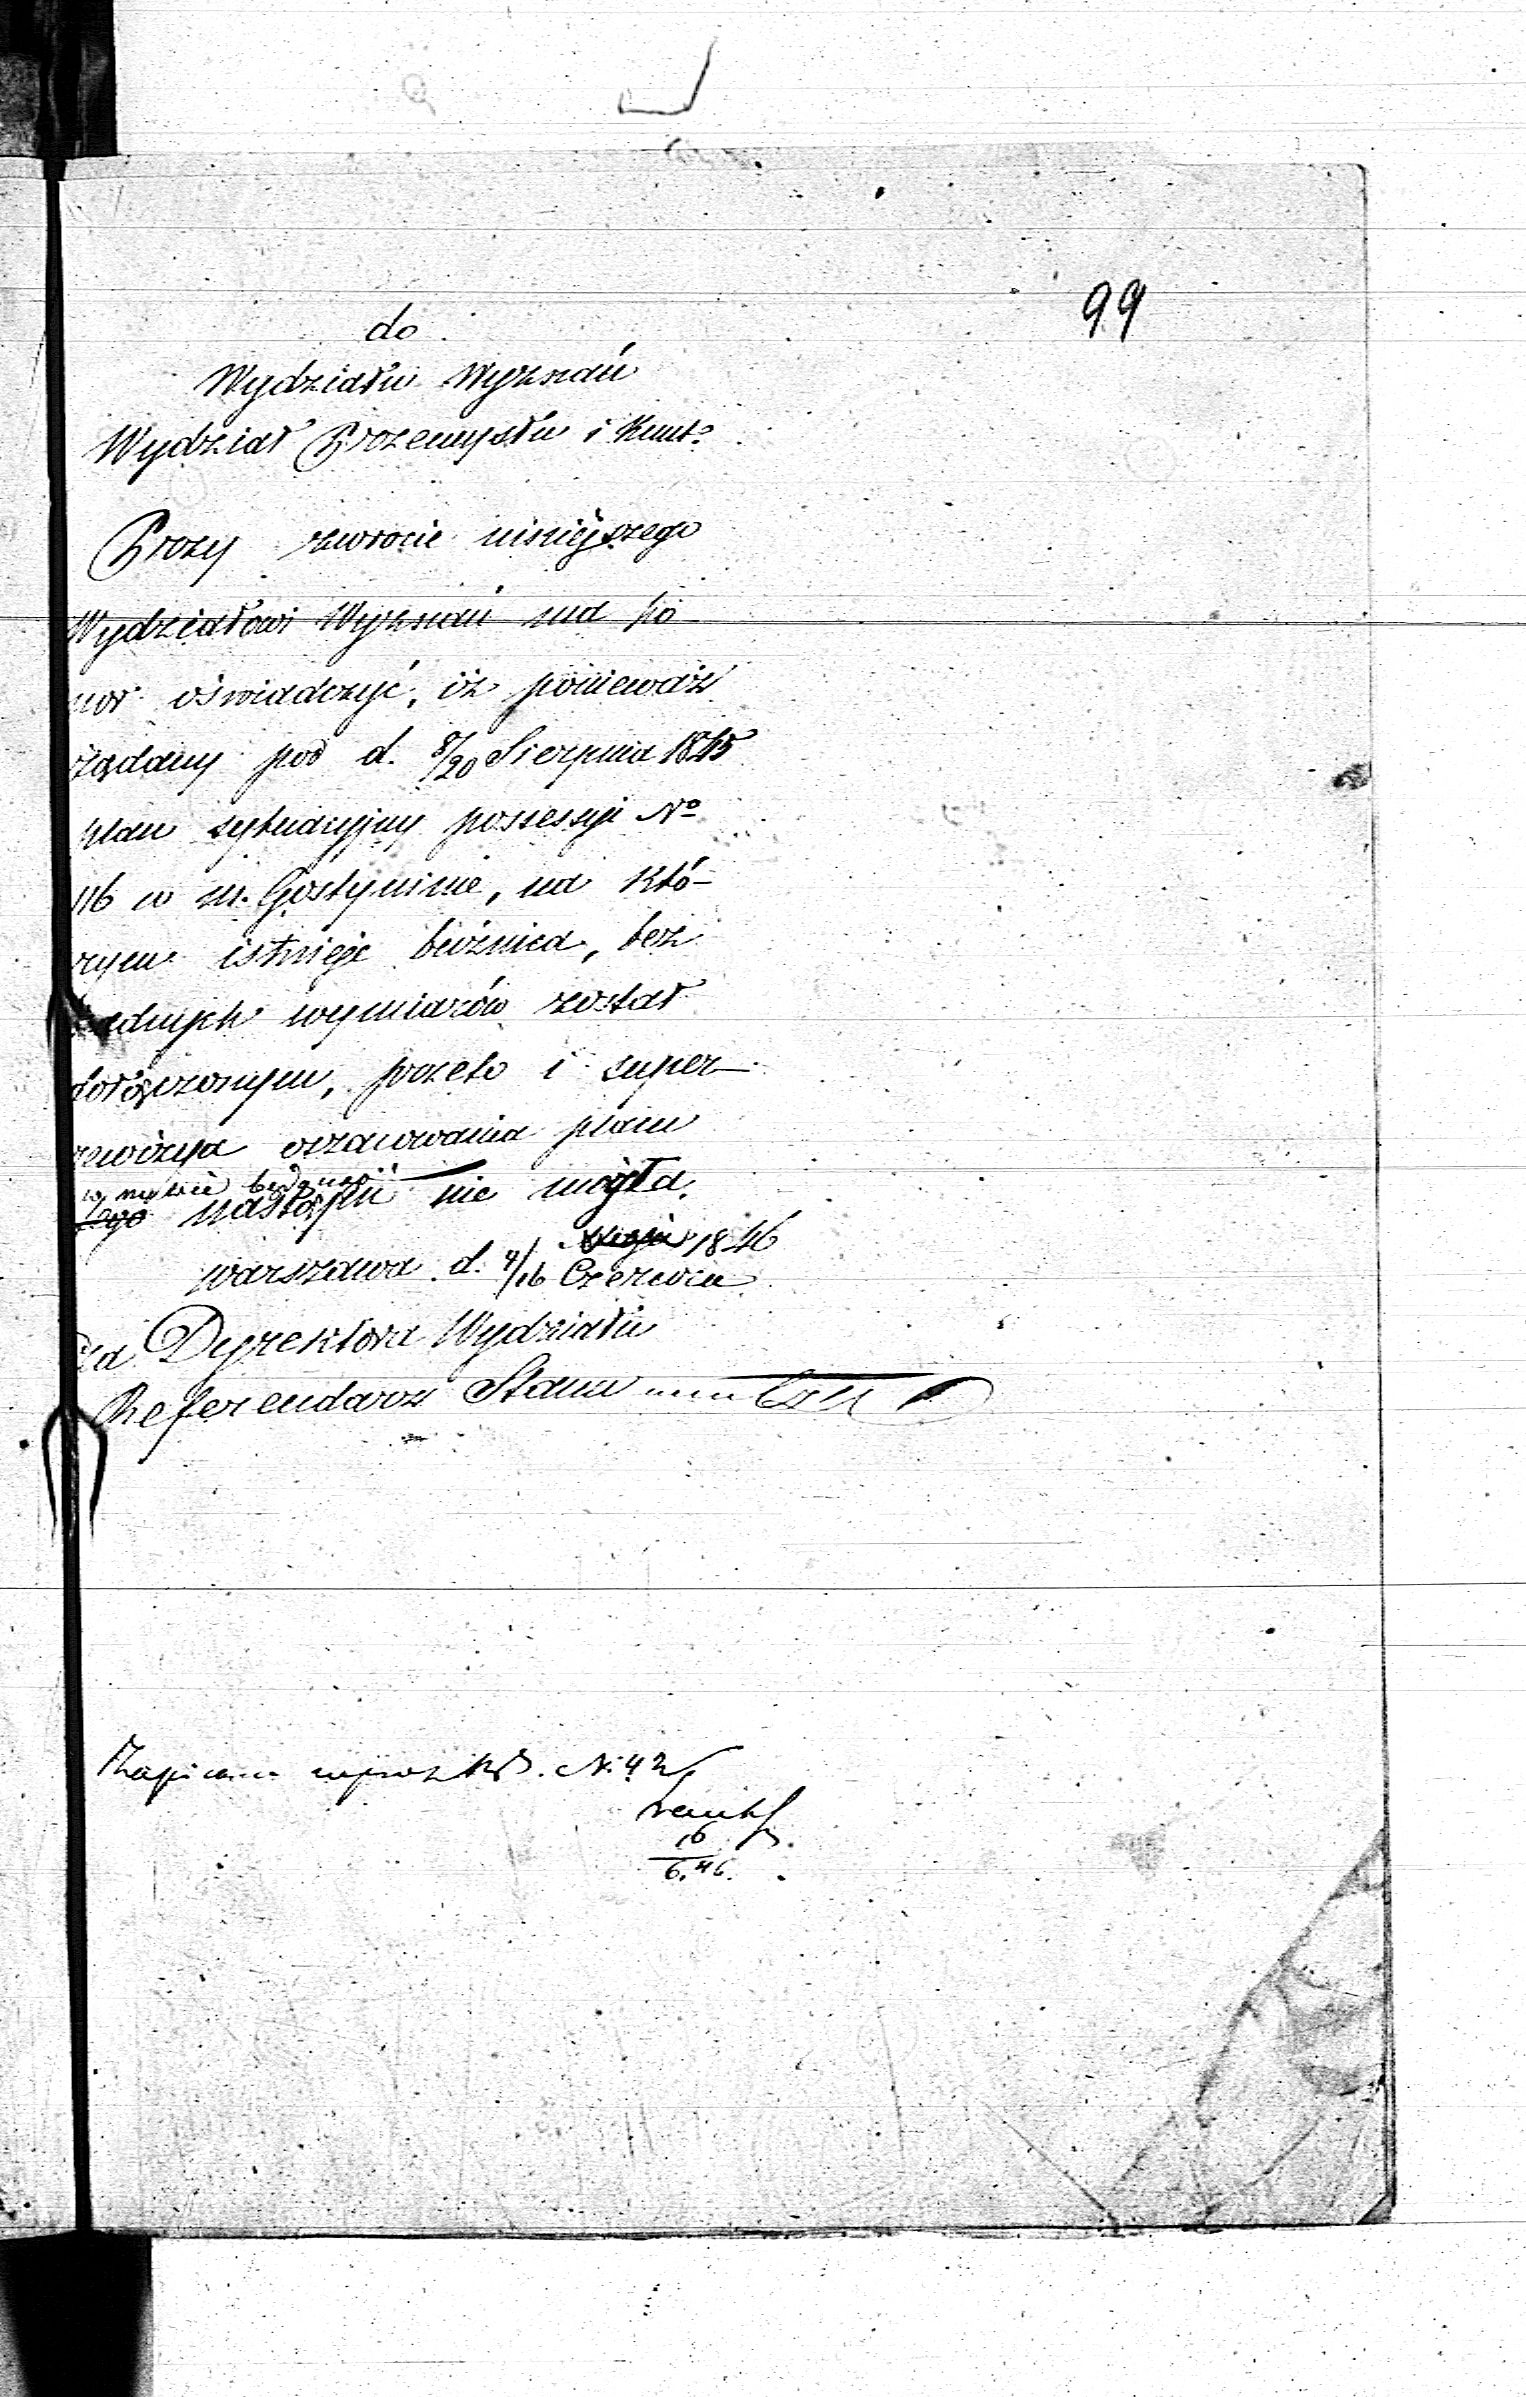 99
do
Wydziału Wyznań
Wydział Przemysłu i Kunt?
Przy zwrocie niniejszego
Wydziałowi Wyznań ma ho-
nor oświadczyć, iż ponieważ
żądany pod d. 8/20 Sierpnia 1845
plan sytuacyjny possessyi No
116 w m. Gostyninie, na któ-
rym istnieje bóżnica, bez
żadnych wymiarów został
dołączonym, przeto i super-
rewizya oszacowania placu
w mowie będącego
tego nastąpić nie mogła.
Warszawa d. 4/16 Czerwca 1846
Za Dyrektora Wydziału
Referendarz Stanu
Zapisano N. 42
16
6.46.